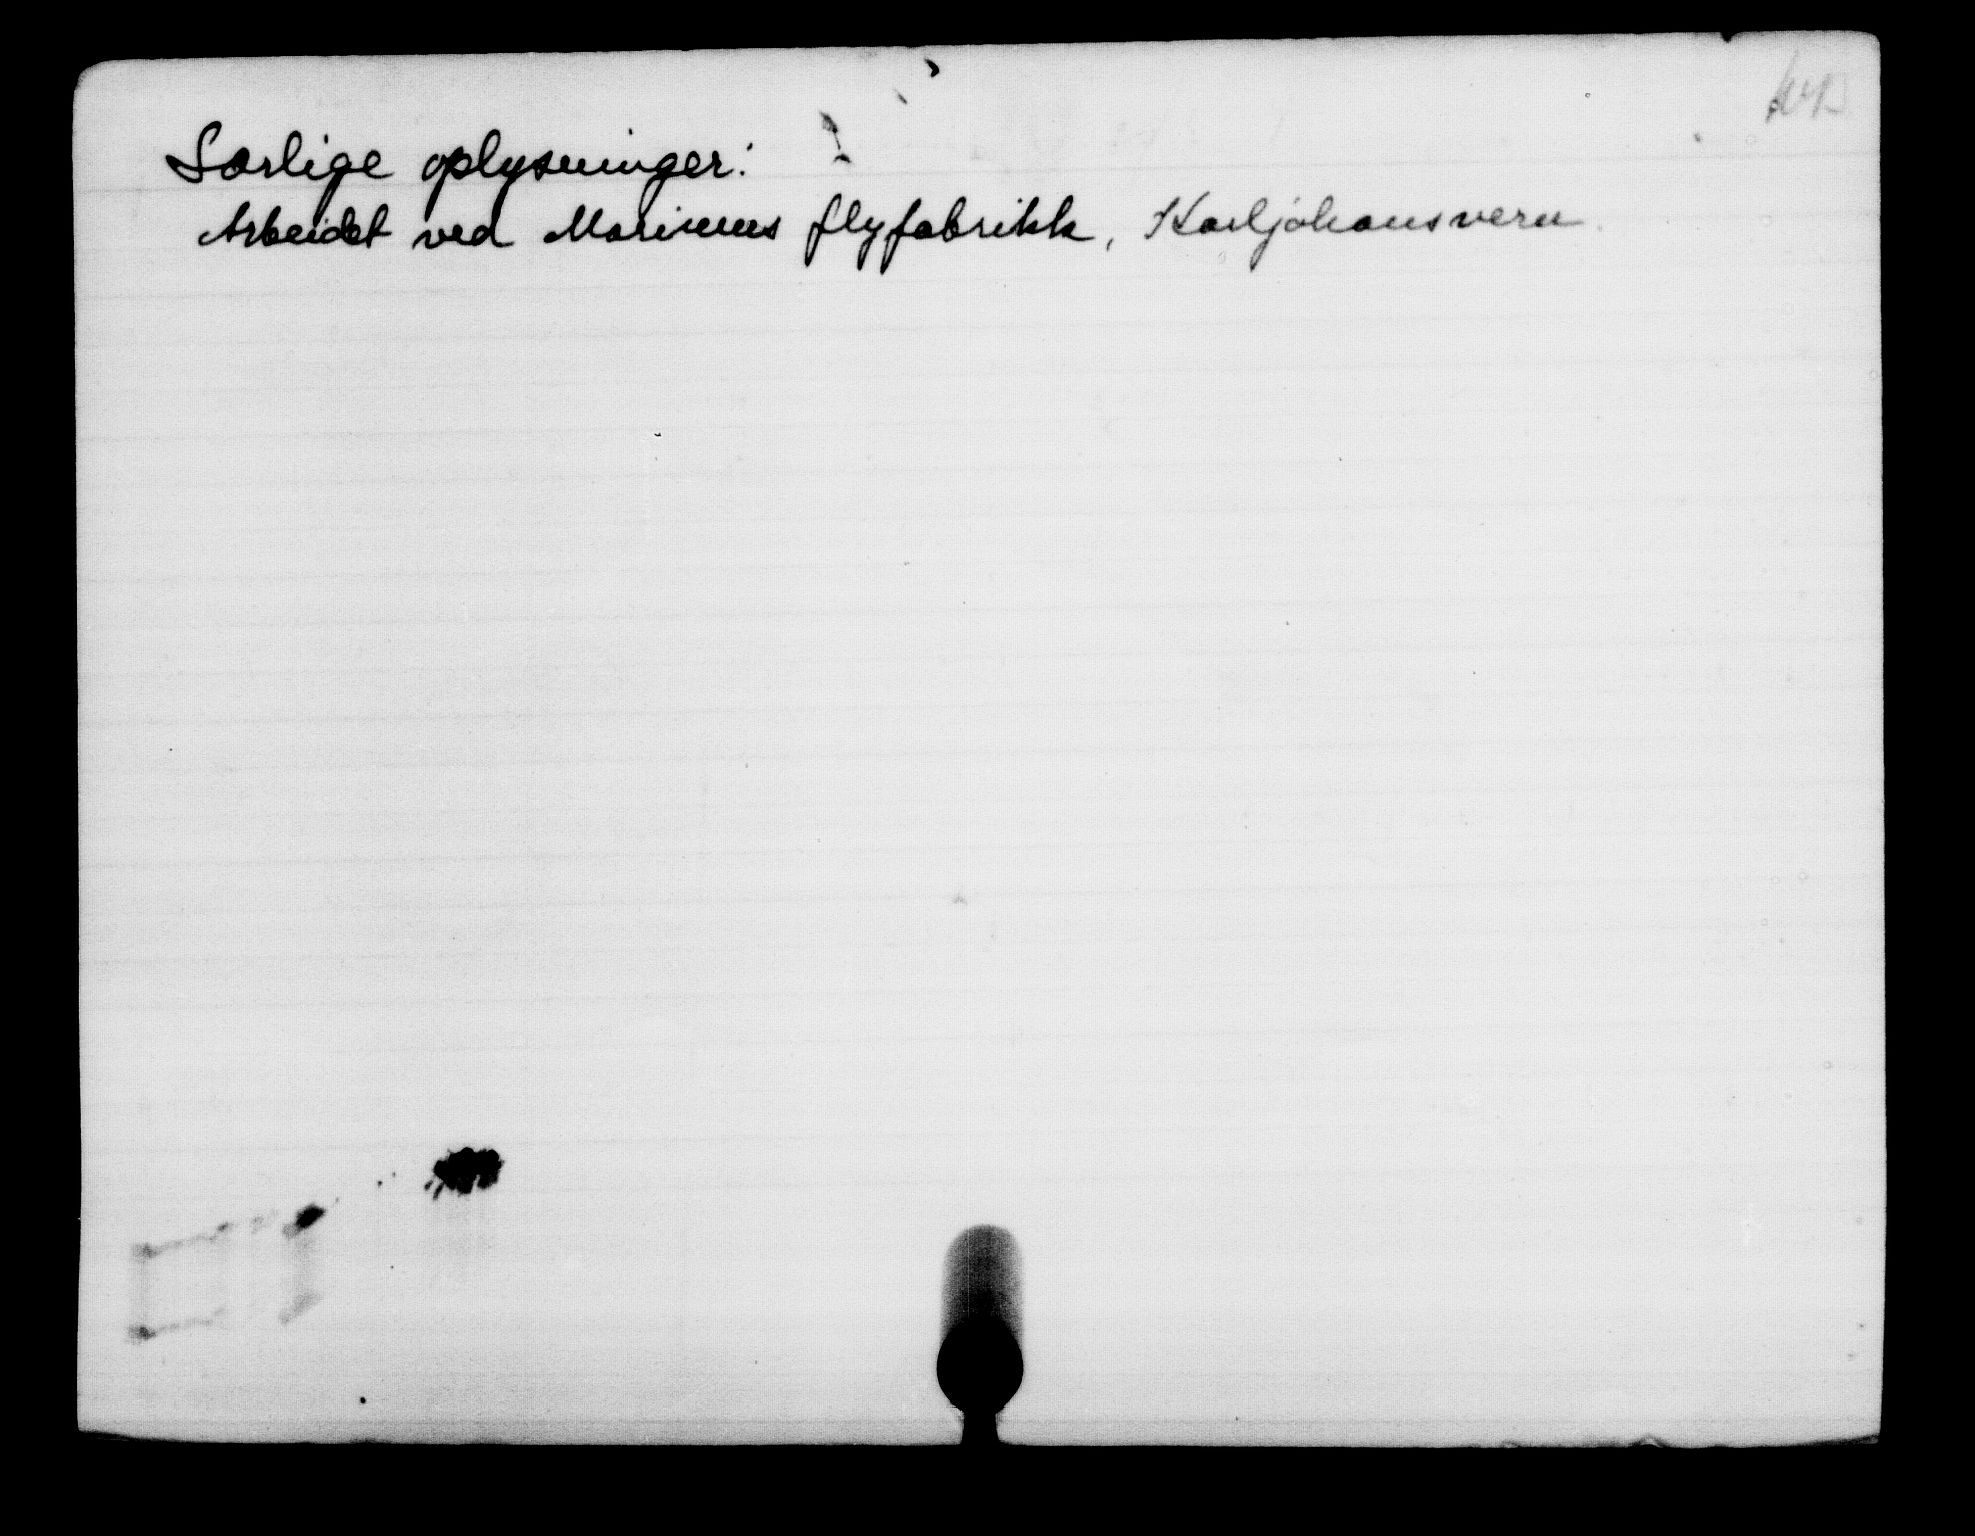 Særlige oplysninger:
Arbeidet ved Marinens flyfabrikk, Karljohansvern.